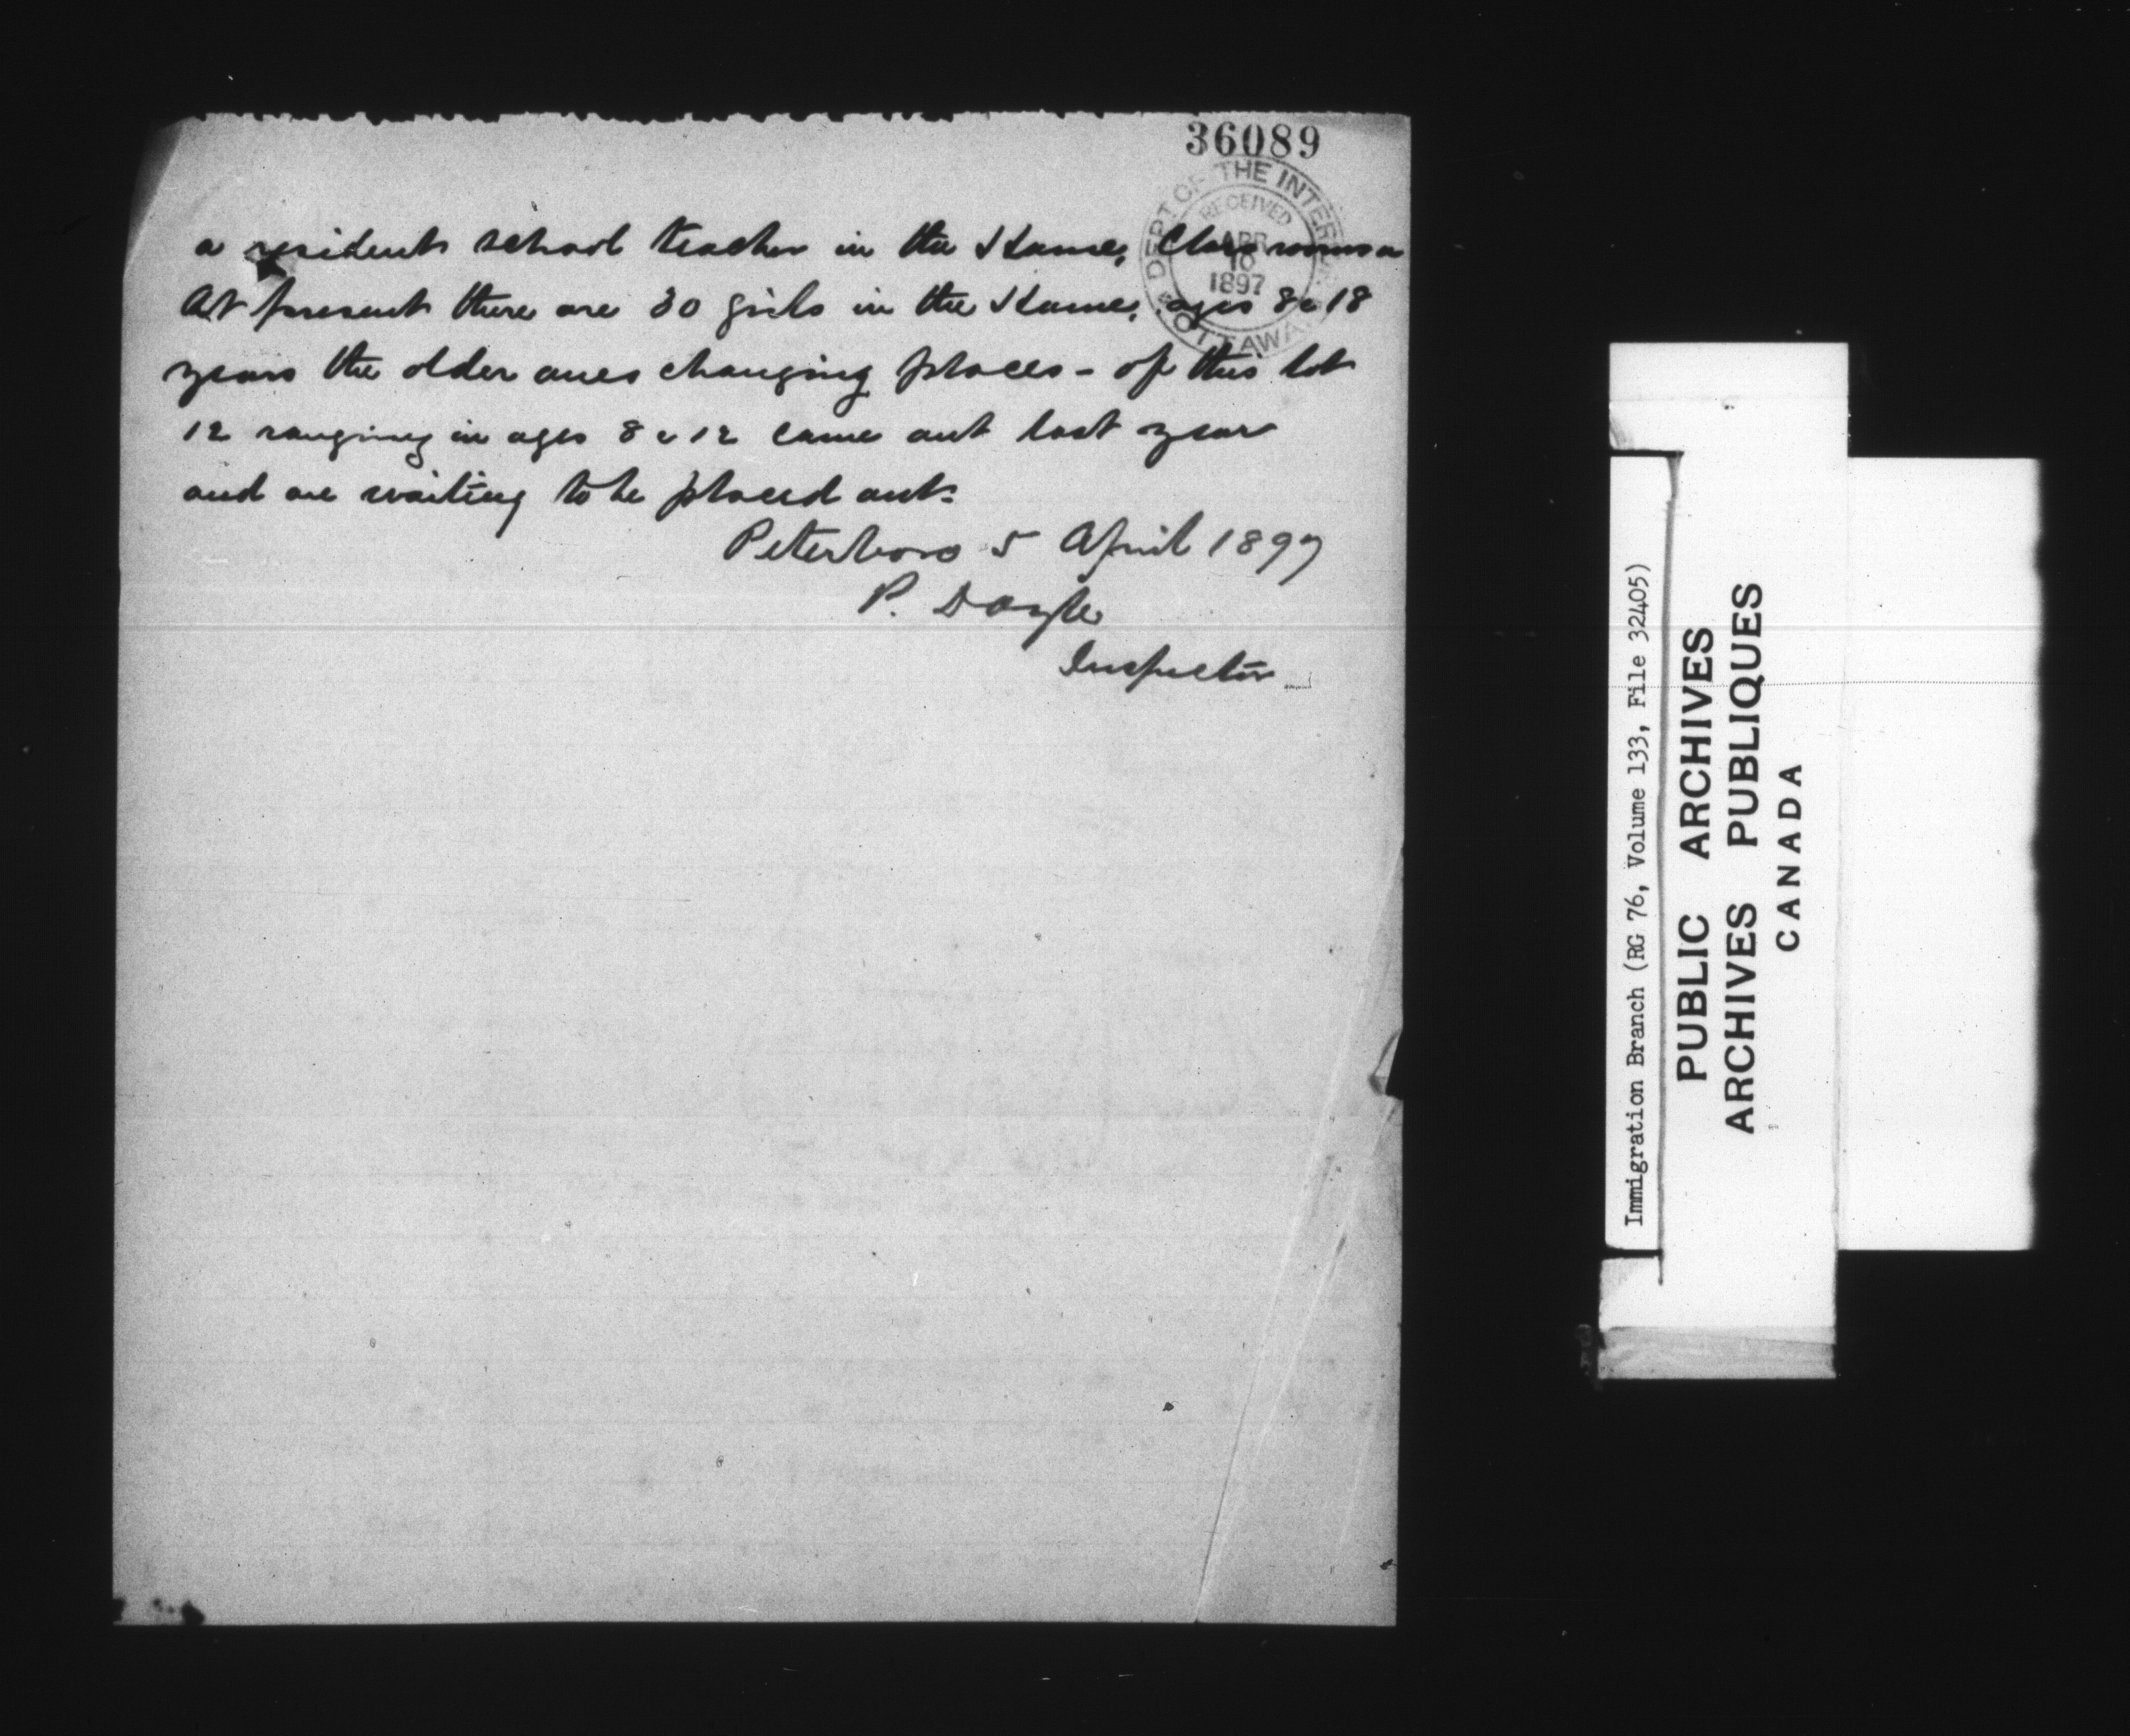 36089
DEPT OF THE INTERIOR
RECEIVED
APR
10
1897
OTTAWA
a resident school teacher in the Home, Class rooms
At present there are 30 girls in the Home, ages 8 & 18
years the older ones changing places - of this lot
12 ranging in ages 8 & 12 came out last year
and are waiting to be placed out.
Peterboro 5 April 1897
P. Doyle
Inspector
Immigration Branch (RG 76, Volume 133, File 32405)
PUBLIC ARCHIVES
ARCHIVES PUBLIQUES
CANADA